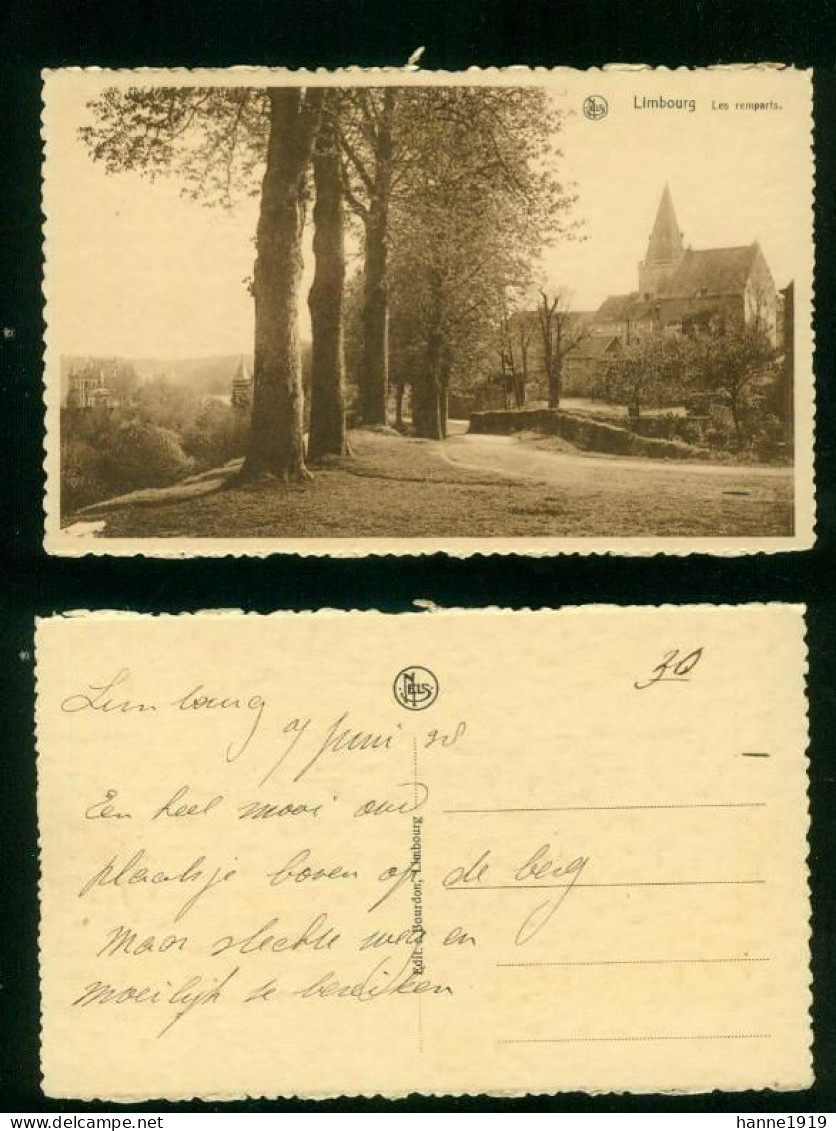 NELS
Limbourg Les remparts.
30
NELS
Limbourg
7 Juni 38
Een heel mooi oud
plaatsje boven op de berg
Maar slechte weg en
moeilijk te bereiken
Edit. Bourdon, Limbourg
hanne1919